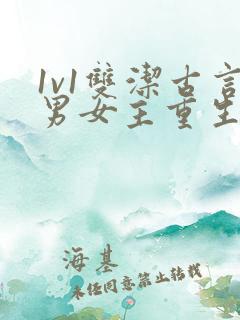 1v1雙潔古言
男女主重生
海基
未經同意禁止轉載